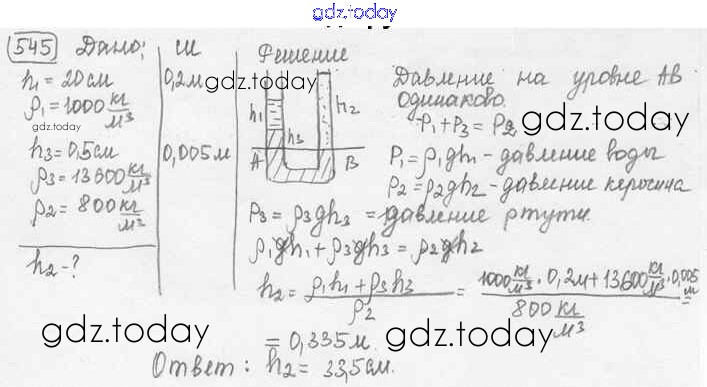 gdz.today
545 Дано: СИ Решение
h₁ = 20 см 0,2 м
ρ₁ = 1000 кг/м³
gdz.today
h₃ = 0,5 см 0,005 м
ρ₃ = 13600 кг/м³
ρ₂ = 800 кг/м³
h₂ - ?
gdz.today
h₁ h₂ h₃ A B
Давление на уровне AB
одинаково.
P₁ + P₃ = P₂ gdz.today
P₁ = ρ₁gh₁ - давление воды
P₂ = ρ₂gh₂ - давление керосина
P₃ = ρ₃gh₃ = давление ртути.
ρ₁gh₁ + ρ₃gh₃ = ρ₂gh₂
h₂ = (ρ₁h₁ + ρ₃h₃)/ρ₂ = (1000 кг/м³ · 0,2 м + 13600 кг/м³ · 0,005 м)/(800 кг/м³) =
gdz.today = 0,335 м. gdz.today
Ответ: h₂ = 33,5 см.